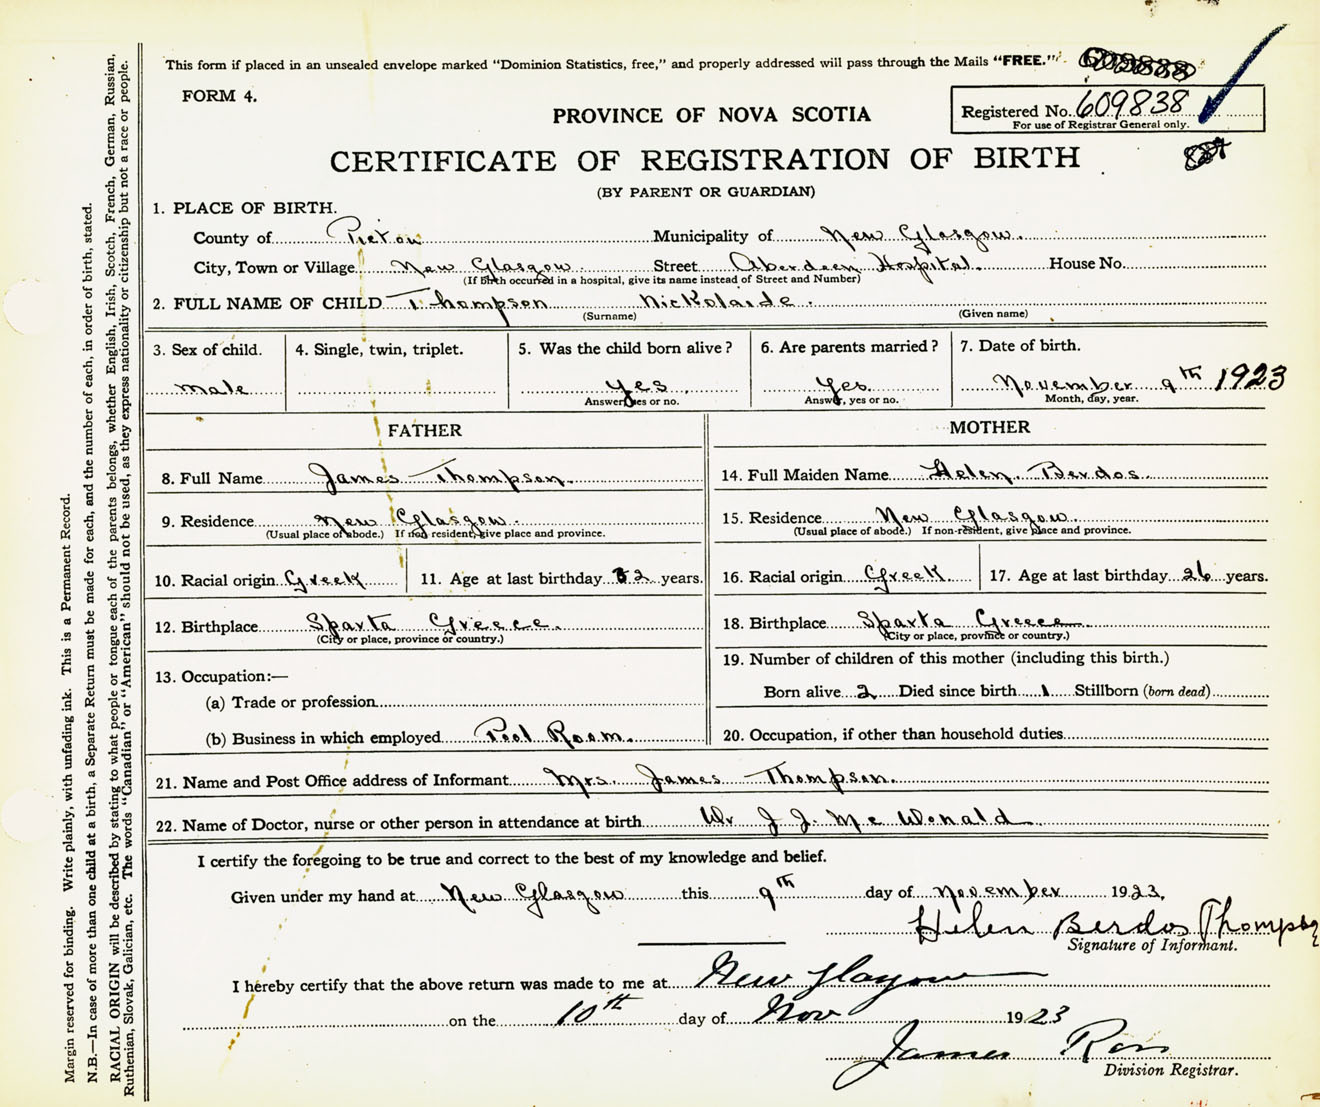 This form if placed in an unsealed envelope marked "Dominion Statistics, free," and properly addressed will pass through the Mails "FREE."
FORM 4.
PROVINCE OF NOVA SCOTIA
Registered No. 609838
For use of Registrar General only.
CERTIFICATE OF REGISTRATION OF BIRTH
(BY PARENT OR GUARDIAN)
1. PLACE OF BIRTH.
County of Pictou Municipality of New Glasgow.
City, Town or Village New Glasgow. Street Aberdeen Hospital. House No.
(If birth occurred in a hospital, give its name instead of Street and Number)
2. FULL NAME OF CHILD Thompson Nickolaide.
(Surname) (Given name)
3. Sex of child. 4. Single, twin, triplet. 5. Was the child born alive? 6. Are parents married? 7. Date of birth.
male yes yes November 9th 1923
Answer, yes or no. Answer, yes or no. Month, day, year.
FATHER MOTHER
8. Full Name James Thompson. 14. Full Maiden Name Helen. Berdos.
9. Residence New Glasgow. 15. Residence New Glasgow.
(Usual place of abode.) If non resident, give place and province. (Usual place of abode.) If non-resident, give place and province.
10. Racial origin Greek 11. Age at last birthday 32 years. 16. Racial origin Greek 17. Age at last birthday 26 years.
12. Birthplace Sparta Greece. 18. Birthplace Sparta Greece
(City or place, province or country.) (City or place, province or country.)
13. Occupation:— 19. Number of children of this mother (including this birth.)
(a) Trade or profession Born alive 2 Died since birth 1 Stillborn (born dead)
(b) Business in which employed Pool Room. 20. Occupation, if other than household duties
21. Name and Post Office address of Informant Mrs. James Thompson.
22. Name of Doctor, nurse or other person in attendance at birth Dr J. J. Mc Donald
I certify the foregoing to be true and correct to the best of my knowledge and belief.
Given under my hand at New Glasgow this 9th day of November 1923.
Helen Berdos Thompson
Signature of Informant.
I hereby certify that the above return was made to me at New Glasgow
on the 10th day of Nov 1923
James Ross
Division Registrar.
Margin reserved for binding. Write plainly, with unfading ink. This is a Permanent Record.
N.B.—In case of more than one child at a birth, a Separate Return must be made for each, and the number of each, in order of birth, stated.
RACIAL ORIGIN will be described by stating to what people or tongue each of the parents belongs, whether English, Irish, Scotch, French, German, Russian,
Ruthenian, Slovak, Galician, etc. The words "Canadian" or "American" should not be used, as they express nationality or citizenship but not a race or people.